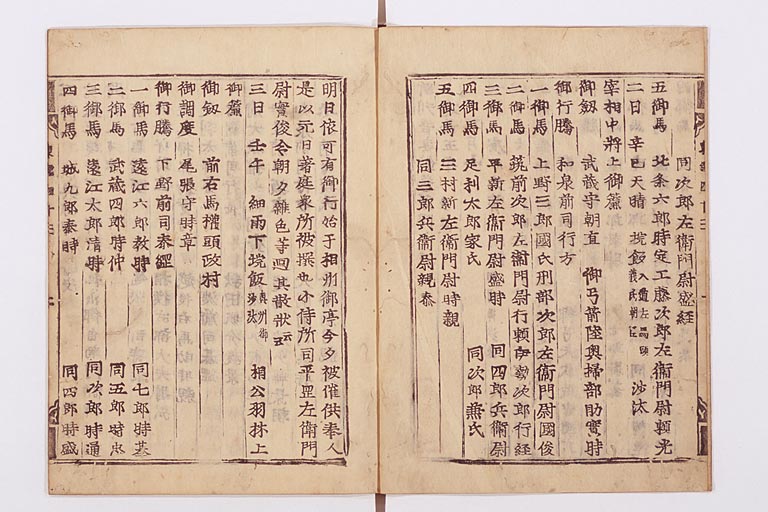 同次郎左衞門尉盛經
五御馬 北条六郎時定工藤次郎左衞門尉頼光
二日 辛巳天晴 埦飯 沙汰
宰相中將上御簾
御劔 武蔵守朝直 御弓箭陸奥掃部助實時
御行騰 和泉前司行方
一御馬 上野三郎國氏刑部次郎左衞門尉國俊
二御馬 筑前次郎左衞門尉行頼伊勢次郎行經
三御馬 平新左衞門尉盛時 同四郎兵衞尉
四御馬 足利太郎家氏 同次郎兼氏
五御馬 三村新左衞門尉時親
同三郎兵衞尉親泰
明日依可有御行始于相州御亭今夕被催供奉人
是以元日著庭衆所被撰也小侍所司平罡左衞門
尉實俊令朝夕雜色等廻其散狀云云
三日 壬午 細雨下埦飯 相公羽林上
御簾
御劔 前右馬權頭政村
御調度 尾張守時章
御行騰 下野前司泰經
一御馬 遠江六郎教時 同七郎時基
二御馬 武蔵四郎時仲 同五郎時忠
三御馬 遠江太郎清時 同次郎時通
四御馬 城九郎泰時 同四郎時盛